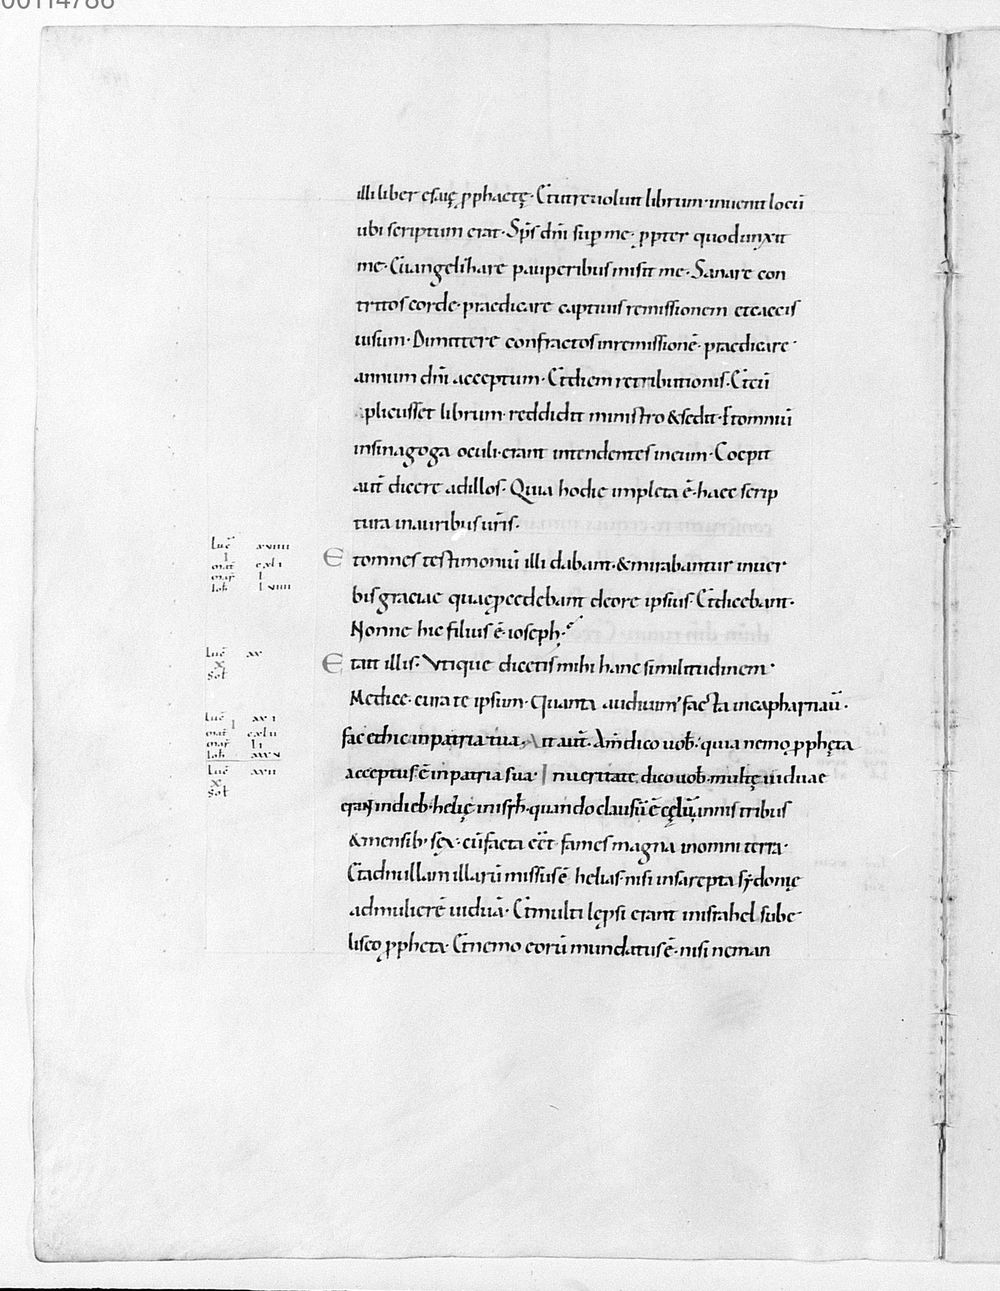 00114786
illi liber esaię ꝓphaetę · Et ut reuoluit librum · inuenit locū
ubi scriptum erat · Sp̄s dn̄i suꝑ me · ꝓpter quod unxit
me · Euangelizare pauperibus misit me · Sanare con
tritos corde · praedicare captiuis remissionem et caecis
uisum · Dimittere confractos in remissionē · praedicare ·
annum dn̄i acceptum · Et diem retributionis · Et cū
plicuisset librum · reddidit ministro & sedit · Et omniū
in sinagoga oculi · erant intendentes in eum · Coepit
aut̄ dicere ad illos · Quia hodie impleta ē · haec scrip
tura in auribus ur̄is ·
Luc̄ xviiii
I
mat̄ cxli
mar̄ L
Ioh̄ Lviiii
Et omnes testimoniū illi dabant · & mirabantur in uer
bis gratiae quae ꝓcedebant de ore ipsius · Et dicebant ·
Nonne hic filius ē · ioseph ·
Luc̄ xx
X
Sol̄
Et ait illis · Vtique dicetis mihi hanc similitudinem ·
Medice · cura te ipsum · Quanta audiuim' facta in capharnaū ·
Luc̄ xxi
I
mat̄ cxlii
mar̄ Li
Ioh̄ xxxv
fac et hic in patria tua · Ait aut̄ · Am̄ dico uob̄ · quia nemo ꝓphęta
Luc̄ xxii
X
Sol̄
acceptus ē in patria sua · In ueritate dico uob̄ · multę uiduae
erant in dieb · helię in isrh̄l · quando clausū ē cęlū annis tribus
& mensib · sex · cū facta eēt fames magna in omni terra ·
Et ad nullam illarū missus ē helias · nisi in sarepta sydonię
ad mulierē uiduā · Et multi lępsi erant in israhel sub e
liseo ꝓpheta · Et nemo eorū mundatus ē · nisi neman